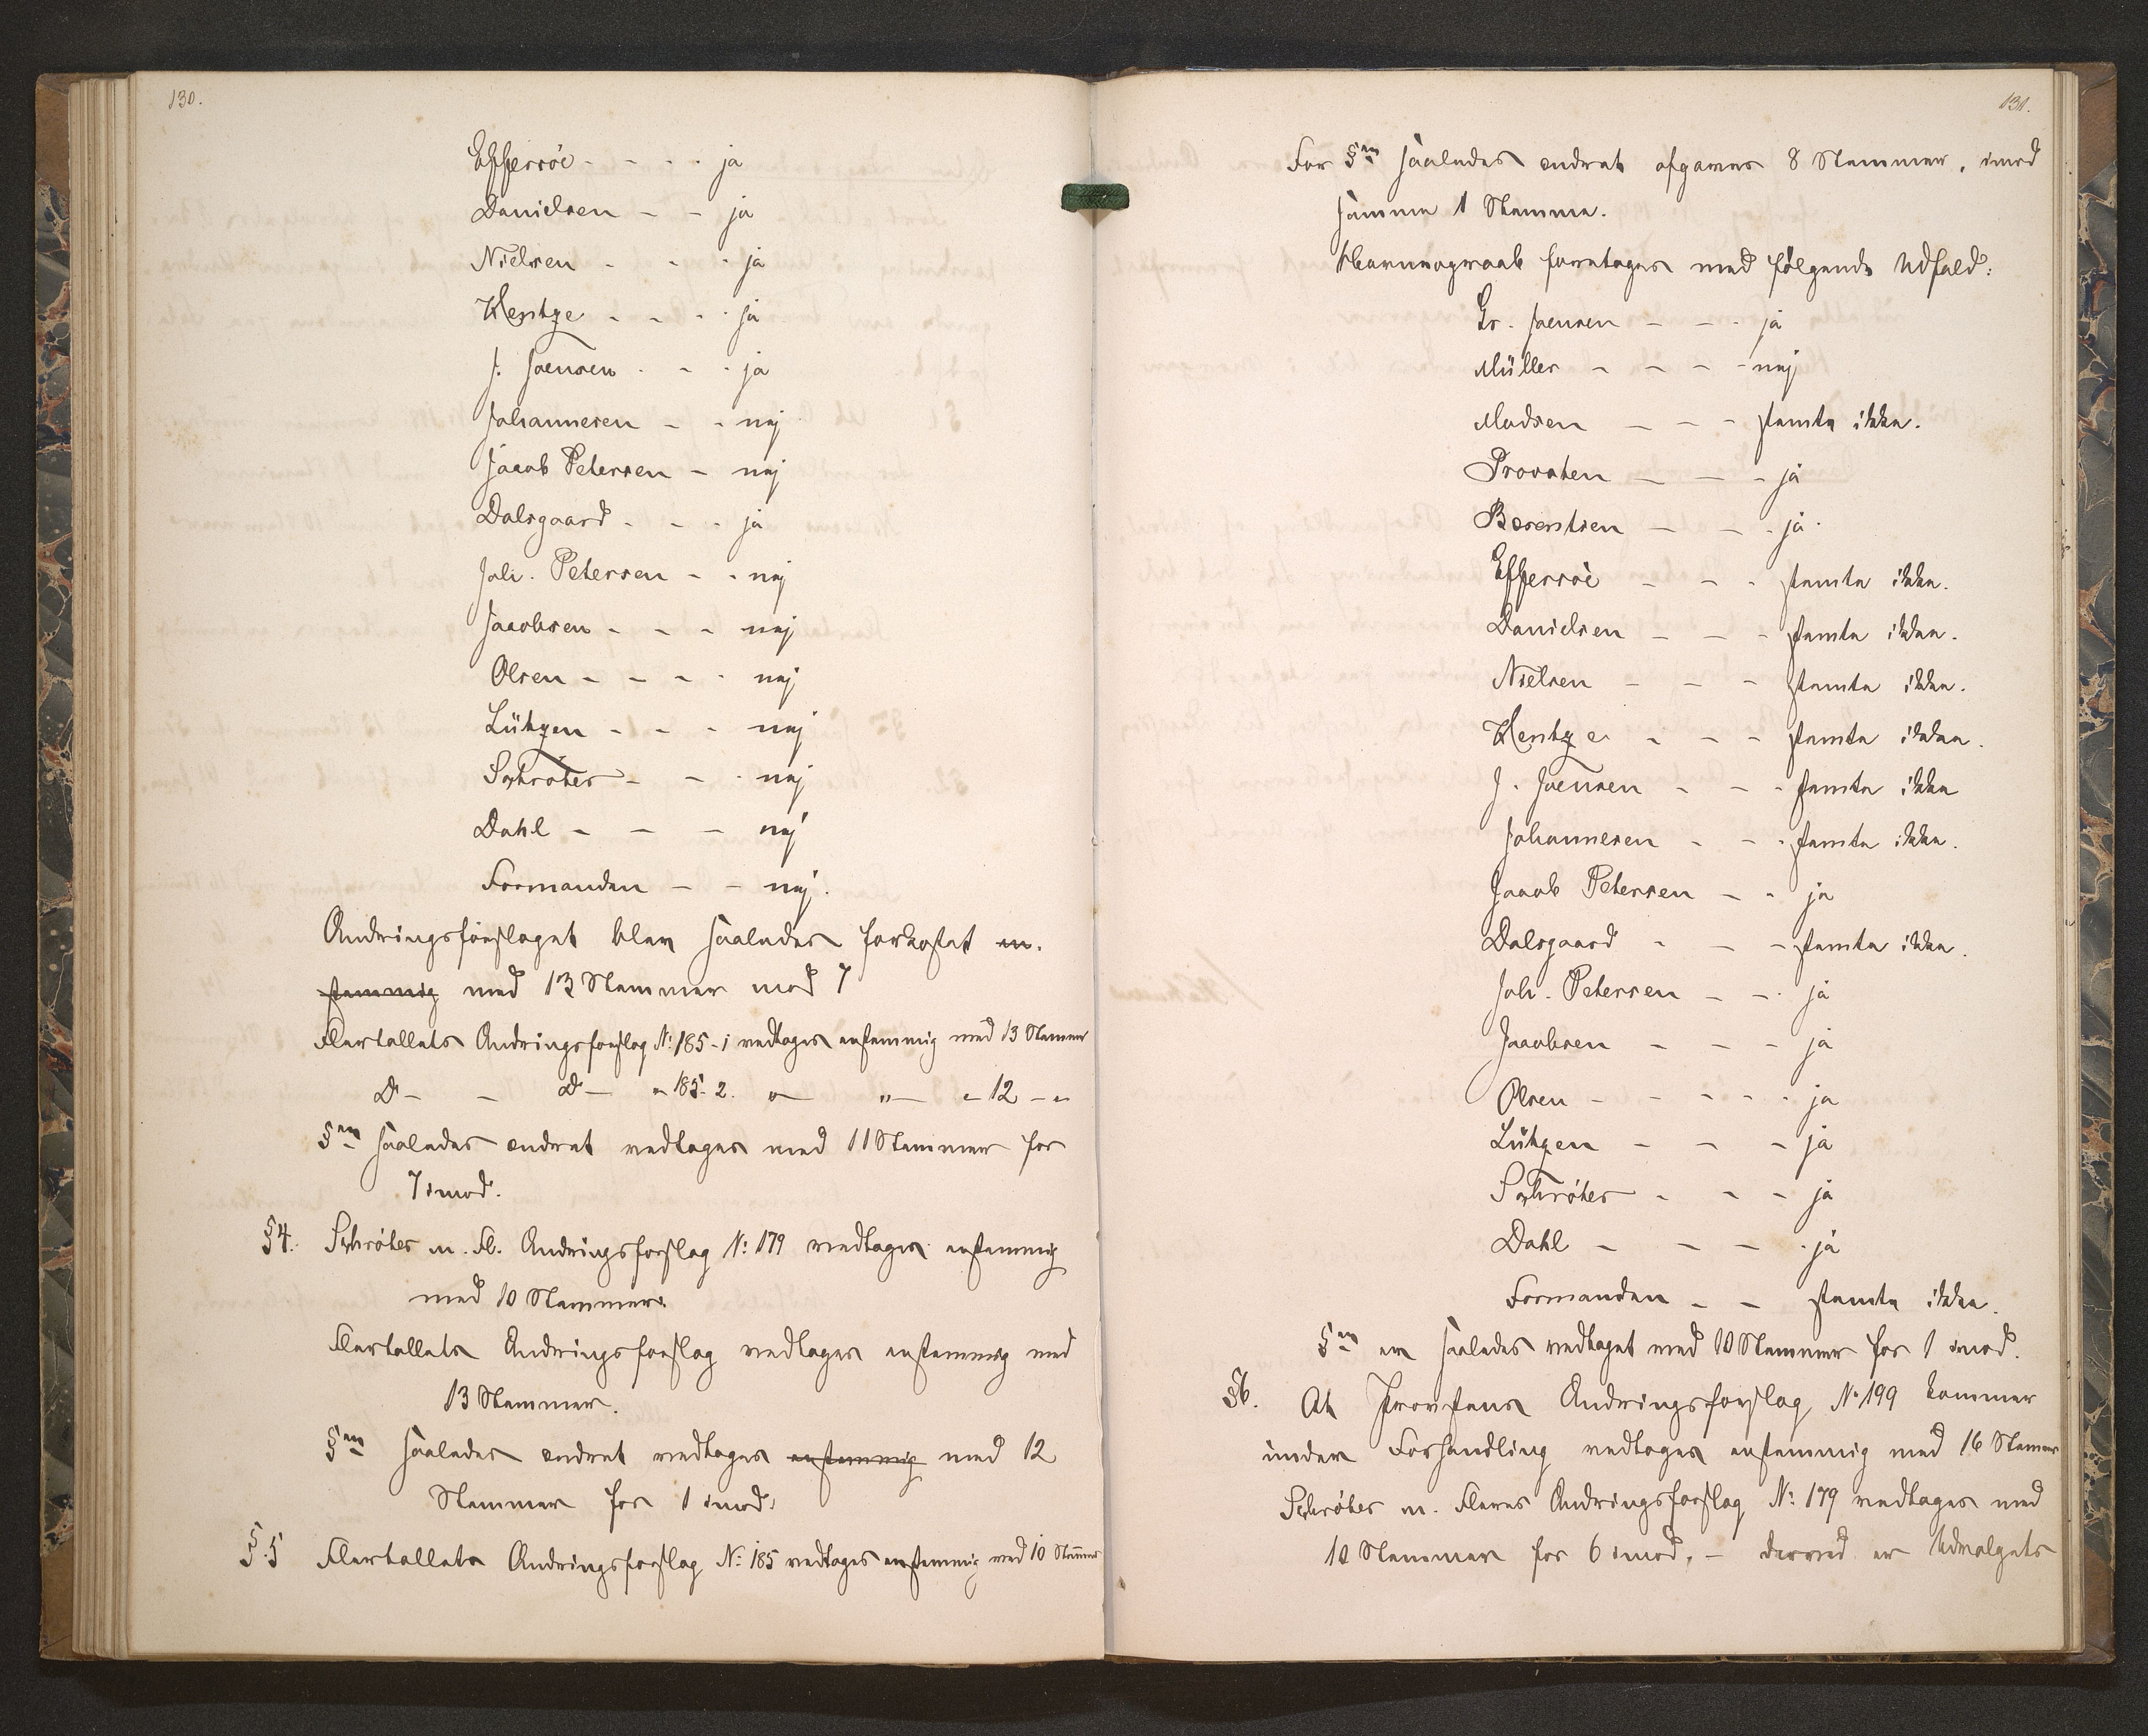 130.
Effersöe - - - - ja
Danielsen - - ja
Nielsen - - - ja
Hentze - - - ja
J. Joensen - - - ja
Johannesen - - nej
Jacob Petersen - nej
Dalsgaard - - - ja
Joh. Petersen - - nej
Jacobsen - - - nej
Olsen - - - - nej
Lützen - - - nej
Schröter - - - nej
Dahl - - - nej
Formanden - - nej.
Ændringsforslaget blev saaledes forkastet en-
stemmig med 13 Stemmer mod 7
Flertallets Ændringsforslag No 185-1 vedtages enstemmig med 13 Stemmer
Do - - Do - " 185-2. " - " - " 12 - "
§en saaledes ændret vedtages med 11 Stemmer for
7 imod.
§4. Schröter m. Fl. Ændringsforslag No 179 vedtages enstemmig
med 10 Stemmer.
Flertallets Ændringsforslag vedtages enstemmig med
13 Stemmer.
§en saaledes ændret vedtages enstemmig med 12
Stemmer for 1 imod.
§.5 Flertallets Ændringsforslag No 185 vedtages enstemmig med 10 Stemmer
131.
For §en saaledes ændret afgaves 8 Stemmer, imod
samme 1 Stemme.
Navneopraab foretages med følgende Udfald:
Gr. Joensen - - - ja
Müller - - - - nej
Madsen - - - stemte ikke.
Provsten - - - ja
Bærentsen - - - ja.
Effersöe - - - stemte ikke.
Danielsen - - - stemte ikke.
Nielsen - - - stemte ikke.
Hentze - - - stemte ikke.
J. Joensen - - - stemte ikke
Johannesen - - - stemte ikke.
Jacob Petersen - - ja
Dalsgaard - - - stemte ikke.
Joh. Petersen - - - ja
Jacobsen - - - ja
Olsen - - - - - ja
Lützen - - - ja
Schröter - - - ja
Dahl - - - - ja
Formanden - - stemte ikke.
§en er saaledes vedtaget med 10 Stemmer for 1 imod.
§6. At Provstens Ændringsforslag No 199 kommer
under Forhandling vedtages enstemmig med 16 Stemmer
Schröter m. Fleres Ændringsforslag No 179 vedtages med
10 Stemmer for 6 imod. - derved er Udvalgets